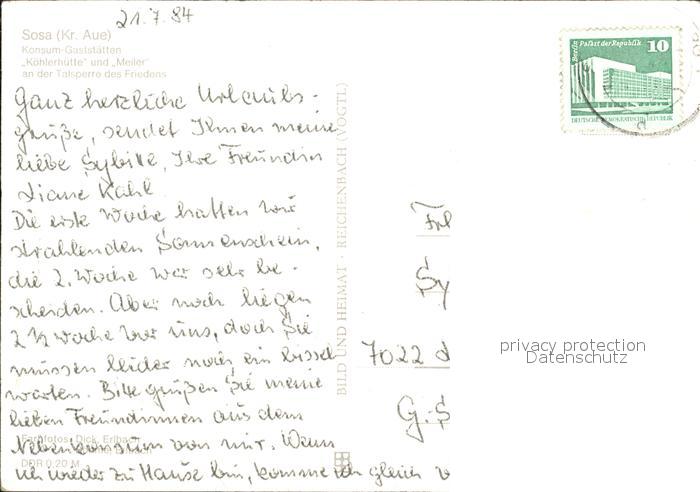 21.7.84
Sosa (Kr. Aue)
Konsum-Gaststätten
„Köhlerhütte" und „Meiler"
an der Talsperre des Friedens
Ganz herzliche Urlaubs-
grüße, sendet Ihnen meine
liebe Sybille, Ihre Freundin
Liane Kahl
Die erste Woche hatten wir
strahlenden Sonnenschein,
die 2. Woche war sehr be-
scheiden. Aber noch liegen
2 ½ Woche vor uns, doch Sie
müssen leider noch ein bissel
warten. Bitte grüßen Sie meine
lieben Freundinnen aus dem
Nebenkonsum von mir. Wenn
ich wieder zu Hause bin, komme ich gleich
Farbfotos: Dick, Erlbach
DDR 0,20 M
BILD UND HEIMAT · REICHENBACH (VOGTL)
Berlin Palast der Republik 10
DEUTSCHE DEMOKRATISCHE REPUBLIK
Frl
Sy
7022
G.-S
privacy protection
Datenschutz